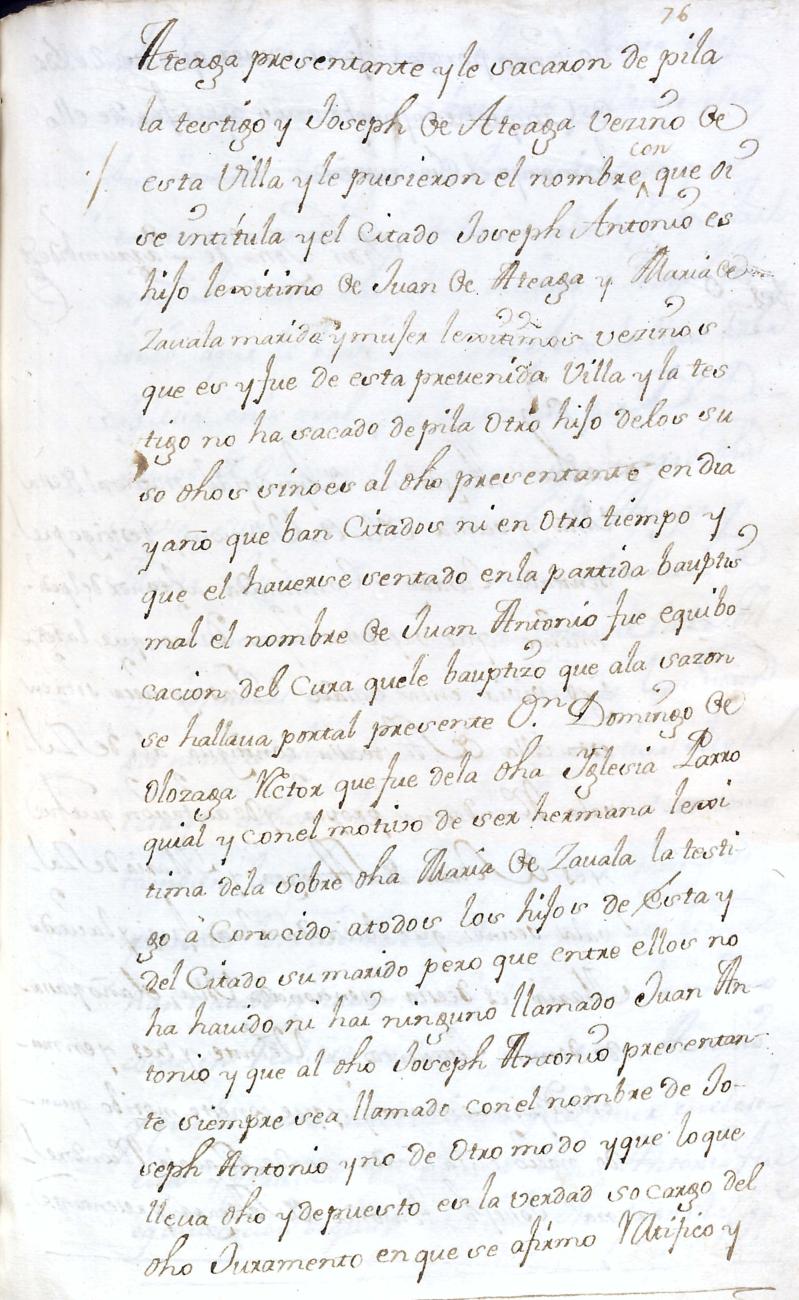 76
Ateaga presentante y le sacaron de pila
la testigo y Joseph de Ateaga vezino de
esta Villa y le pusieron el nombre con que oi
se intitula y el Citado Joseph Antonio es
hijo lexitimo de Juan de Ateaga y Maria de
Zavala marido y mujer lexitimos vezinos
que es y fue de esta prevenida Villa y la tes
tigo no ha sacado de pila Otro hijo delos su
so dhos sinoes al dho presentante en dia
y año que ban Citados ni en Otro tiempo y
que el haverse sentado enla partida bauptis
mal el nombre de Juan Antonio fue equibo-
cacion del Cura quele bauptizo que ala sazon
se hallava portal presente Dn. Domingo de
Olozaga Rector que fue dela dha Yglesia Parro
quial y conel motivo de ser hermana lexi
tima dela sobre dha Maria de Zavala la testi-
go à Conocido atodos los hijos de Esta y
del Citado su marido pero que entre ellos no
ha havido ni hai ninguno llamado Juan An-
tonio y que al dho Joseph Antonio presentan-
te siempre sea llamado conel nombre de Jo-
seph Antonio y no de Otro modo y que lo que
lleva dho y depuesto es la verdad so cargo del
dho Juramento en que se afirmo Ratifico y